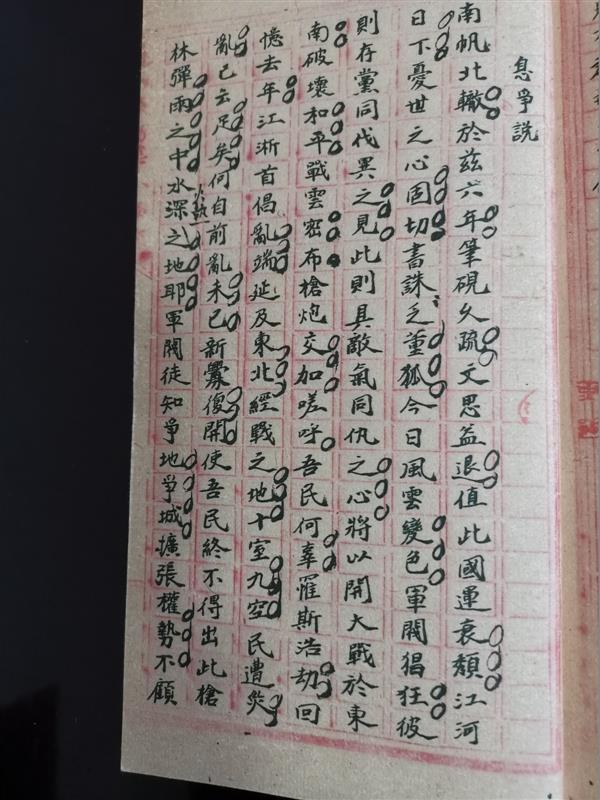 息爭説
南帆北轍於茲六年筆硯久疏文思益退值此國運衰頹江河
日下憂世之心固切書誅乏董狐今日風雲變色軍閥猖狂彼
則存黨同伐異之見此則具敵氣同仇之心將以開大戰於東
南破壞和平戰雲密布槍炮交加嗟呼吾民何辜罹斯浩劫回
憶去年江浙首倡亂端延及東北經戰之地十室九空民遭災
亂已云足矣何自前亂未已新釁復開使吾民終不得出此槍
林彈雨之中水深火熱之地耶軍閥徒知爭地爭城擴張權勢不顧